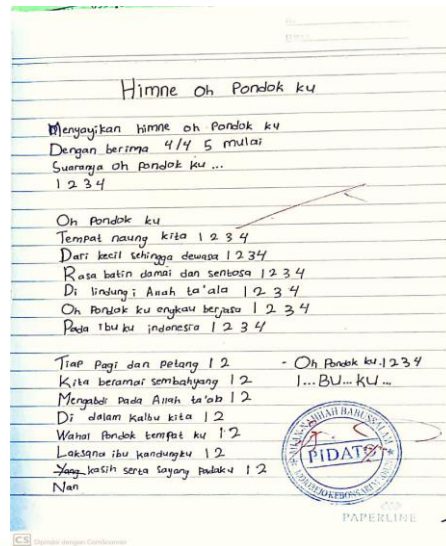 Himne oh Pondok ku
Menyayikan himne oh Pondok ku
Dengan berima 4/4 5 mulai
Suaranya oh pondok ku ...
1 2 3 4
Oh Pondok ku
Tempat naung kita 1 2 3 4
Dari kecil sehingga dewasa 1 2 3 4
Rasa batin damai dan sentosa 1 2 3 4
Di lindungi Allah ta'ala 1 2 3 4
Oh Pondok ku engkau berjasa 1 2 3 4
Pada Ibu ku indonesia 1 2 3 4
Tiap Pagi dan petang 1 2
Kita beramai sembahyang 1 2
Mengabdi Pada Allah ta'ala 1 2
Di dalam kalbu kita 1 2
Wahai Pondok tempat ku 1 2
Laksana ibu kandungku 1 2
Yang kasih serta sayang padaku 1 2
Nan
- Oh Pondok ku.1 2 3 4
I... BU... KU...
PIDATO
PAPERLINE
CS Dipindai dengan CamScanner